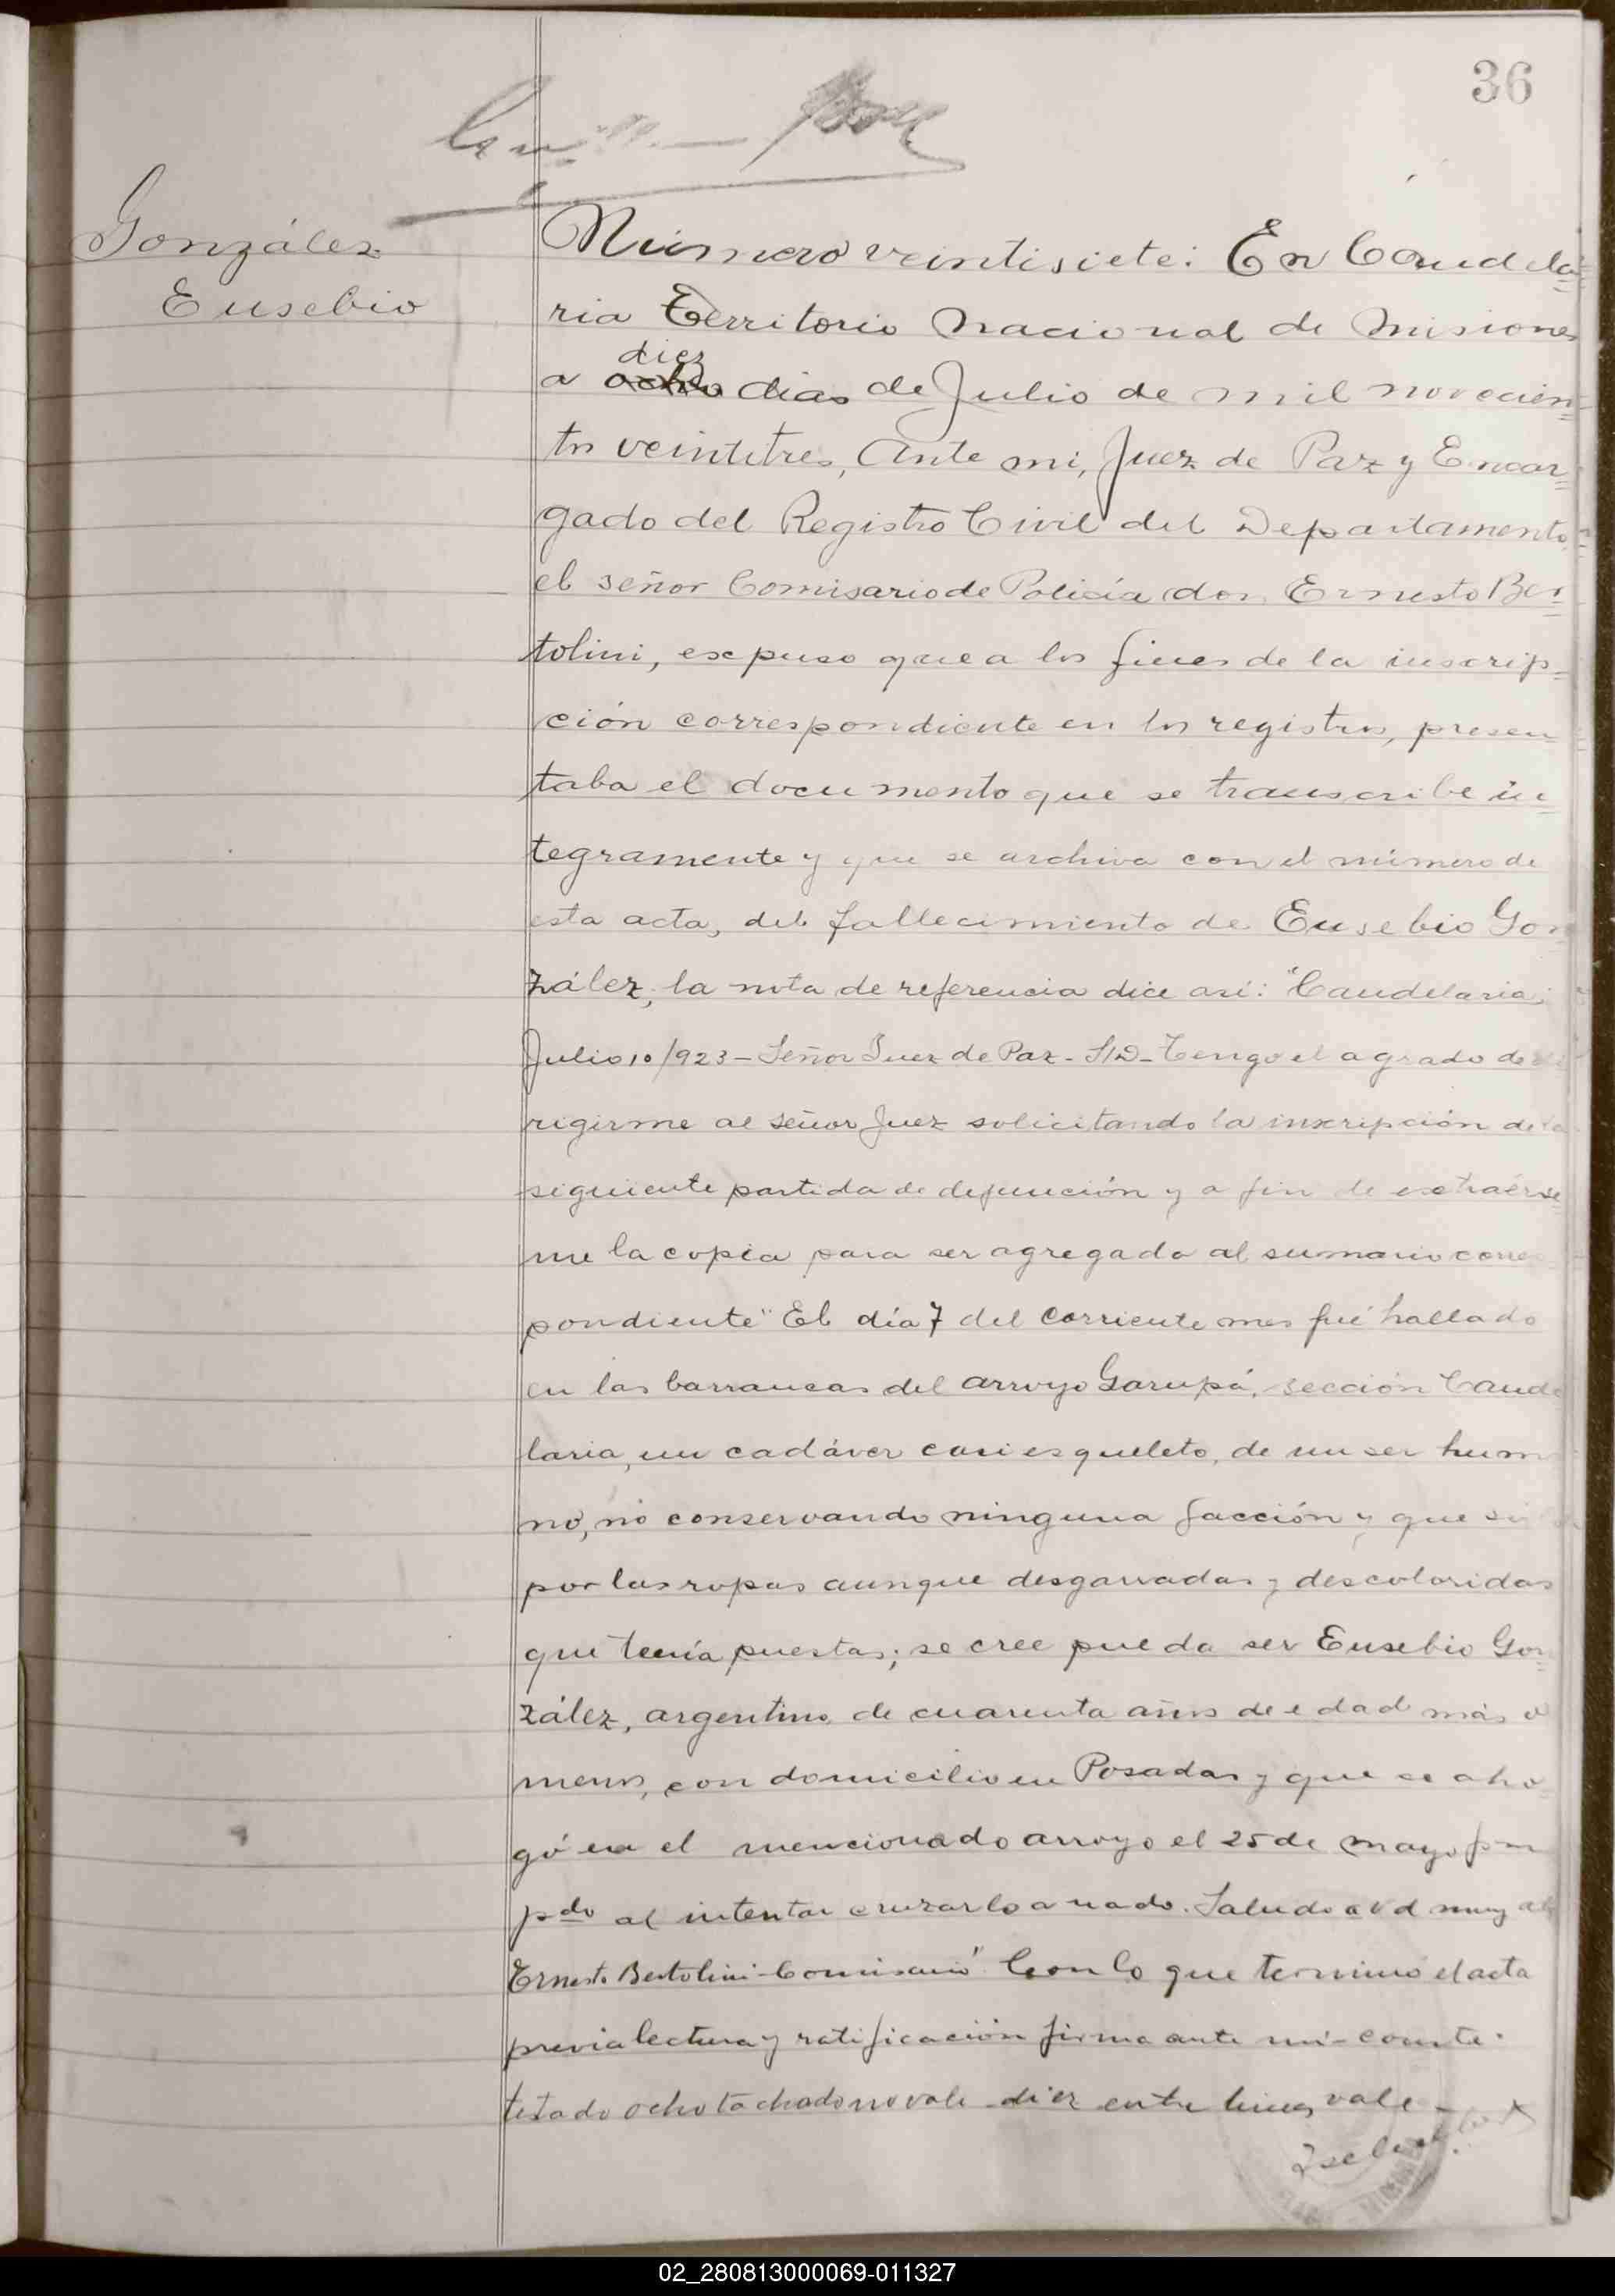 36
González
Eusebio
Número veintisiete: En Candela=
ria Territorio Nacional de Misiones
diez
a ocho dias de Julio de mil novecien=
tos veintitres, Ante mi, Juez de Paz y Encar=
gado del Registro Civil del Departamento,
el señor Comisario de Policía don Ernesto Ber=
tolini, expuso que a los fines de la inscrip=
ción correspondiente en los registros, presen=
taba el documento que se transcribe in=
tegramente y que se archiva con el número de
esta acta, del fallecimiento de Eusebio Gon
zález, la nota de referencia dice asi: "Candelaria,
Julio 10/923 - Señor Juez de Paz - S/D - Tengo el agrado de di
rigirme al señor Juez solicitando la inscripción de la
siguiente partida de defunción y a fin de extraérse
me la copia para ser agregada al sumario corres
pondiente" El día 7 del corriente mes fué hallado
en las barrancas del arroyo Garupá, sección Cande
laria, un cadáver casi esqueleto, de un ser huma
no, no conservando ninguna facción y que si
por las ropas aunque desgarradas y descoloridas
que tenía puestas; se cree pueda ser Eusebio Gon=
zález, argentino, de cuarenta años de edad más o
menos, con domicilio en Posadas y que se aho=
gó en el mencionado arroyo el 25 de mayo ppp
pdo al intentar cruzarlo a nado. Saludo a Vd muy att
Ernesto Bertolini - Comisario" Con lo que terminó el acta
previa lectura y ratificación firma ante mi - conste.
testado ocho tachado no vale - diez entre lineas vale -
02_280813000069-011327